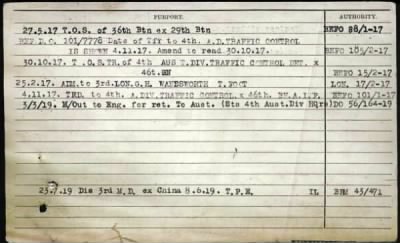 PURPORT. AUTHORITY.
27.5.17 T.O.S. of 36th Btn ex 29th Btn BEFO 88/1-17
REF D.O. 101/7778 Date of Tfr to 4th. A.D.TRAFFIC CONTROL
IS SHEWN 4.11.17. Amend to read 30.10.17. BEFO 105/2-17
30.10.17. T.O.S.TR.of 4th AUST.DIV.TRAFFIC CONTROL DET. x
46t.BN BEFO 15/2-17
25.2.17. ADM.to 3rd.LON.G.H. WANDSWORTH T.FOOT LON. 17/2-17
4.11.17. TRD. to 4th. A.DIV.TRAFFIC CONTROL. x 46th. BN.A.I.F. BEFO 101/1-17
3/3/19. M/Out to Eng. for ret. To Aust. (Sts 4th Aust.Div HQrs) DO 56/164-19
23.7.19 Dis 3rd M.D. ex China 8.6.19. T.P.E. IL BRM 43/471